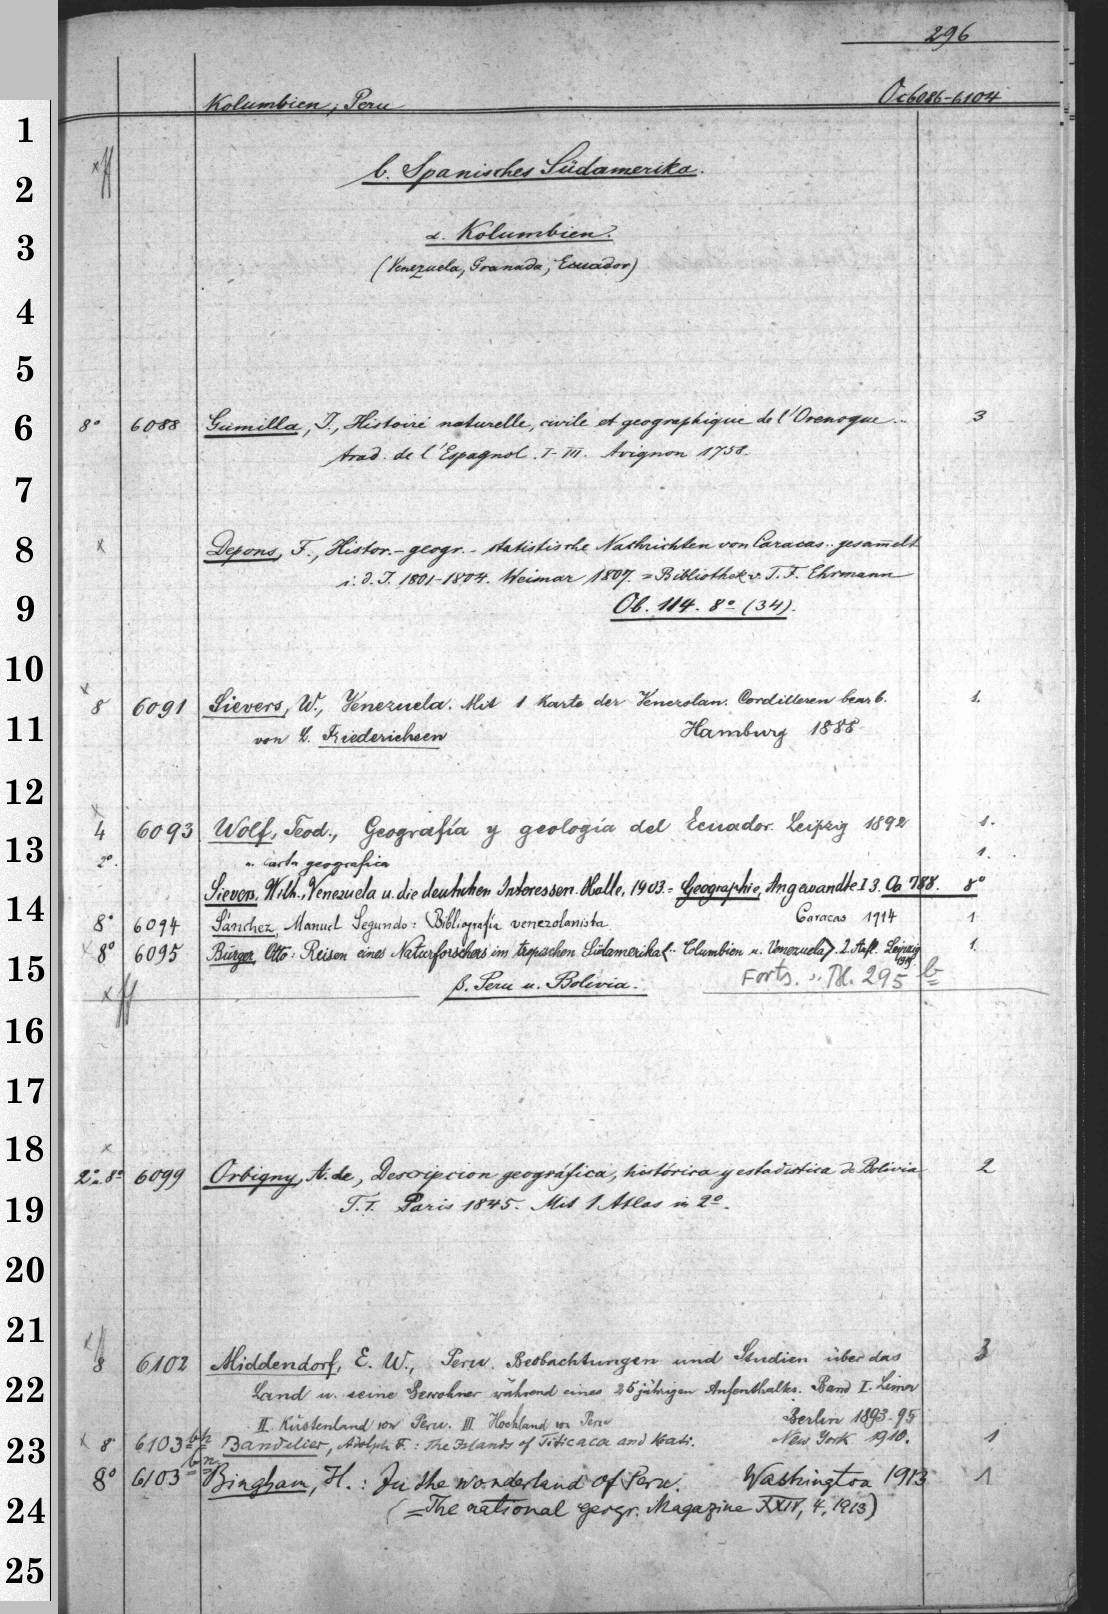 296
Kolumbien, Peru Oc 6086-6104
1
2 b. Spanisches Südamerika.
3 α. Kolumbien.
(Venezuela, Granada, Ecuador)
4
5
6 8° 6088 Gumilla, J., Histoire naturelle, civile et geographique de l'Orenoque... 3
trad. de l'Espagnol. I-III. Avignon 1758.
7
8 x Depons, F., Histor.-geogr.-statistische Nachrichten von Caracas.. gesam̅elt
i. d. J. 1801-1804. Weimar 1807. = Bibliothek v. T. F. Ehrmann
9 Ob. 114. 8° (34).
10
x
8 6091 Sievers, W., Venezuela. Mit 1 Karte der Venezolan. Cordilleren bearb. 1.
11 von L. Friederichsen Hamburg 1888
12
x
4 6093 Wolf, Teod., Geografía y geología del Ecuador. Leipzig 1892 1.
13 2°. u. Carta geografica 1.
Sievers, Wilh., Venezuela u. die deutschen Interessen. Halle, 1903. = Geographie, Angewandte I 3. Oa 788. 8°
14 8° 6094 Sánchez, Manuel Segundo: Bibliografía venezolanista. Caracas 1914 1
x 8° 6095 Bürger, Otto: Reisen eines Naturforschers im tropischen Südamerika (.. Columbien u. Venezuela). 2. Aufl. Leipzig 1919. 1.
15 β. Peru u. Bolivia. Forts. s. Bl. 295 b
16
17
18 x
2° u. 8° 6099 Orbigny, A. de, Descripcion geográfica, histórica y estadistica de Bolivia 2
19 T. I. Paris 1845. Mit 1 Atlas in 2°.
20
21
8 6102 Middendorf, E. W., Peru. Beobachtungen und Studien über das 3
22 Land u. seine Bewohner während eines 25jährigen Aufenthaltes. Band I. Lima
II. Küstenland von Peru. III Hochland von Peru Berlin 1893-95
23 x 8 6103 bh Bandelier, Adolph F.: The Islands of Titicaca and Koati. New York 1910. 1
8° 6103 bn Bingham, H.: In the wonderland of Peru. Washington 1913 1
24 (= The national geogr. Magazine XXIV, 4, 1913)
25